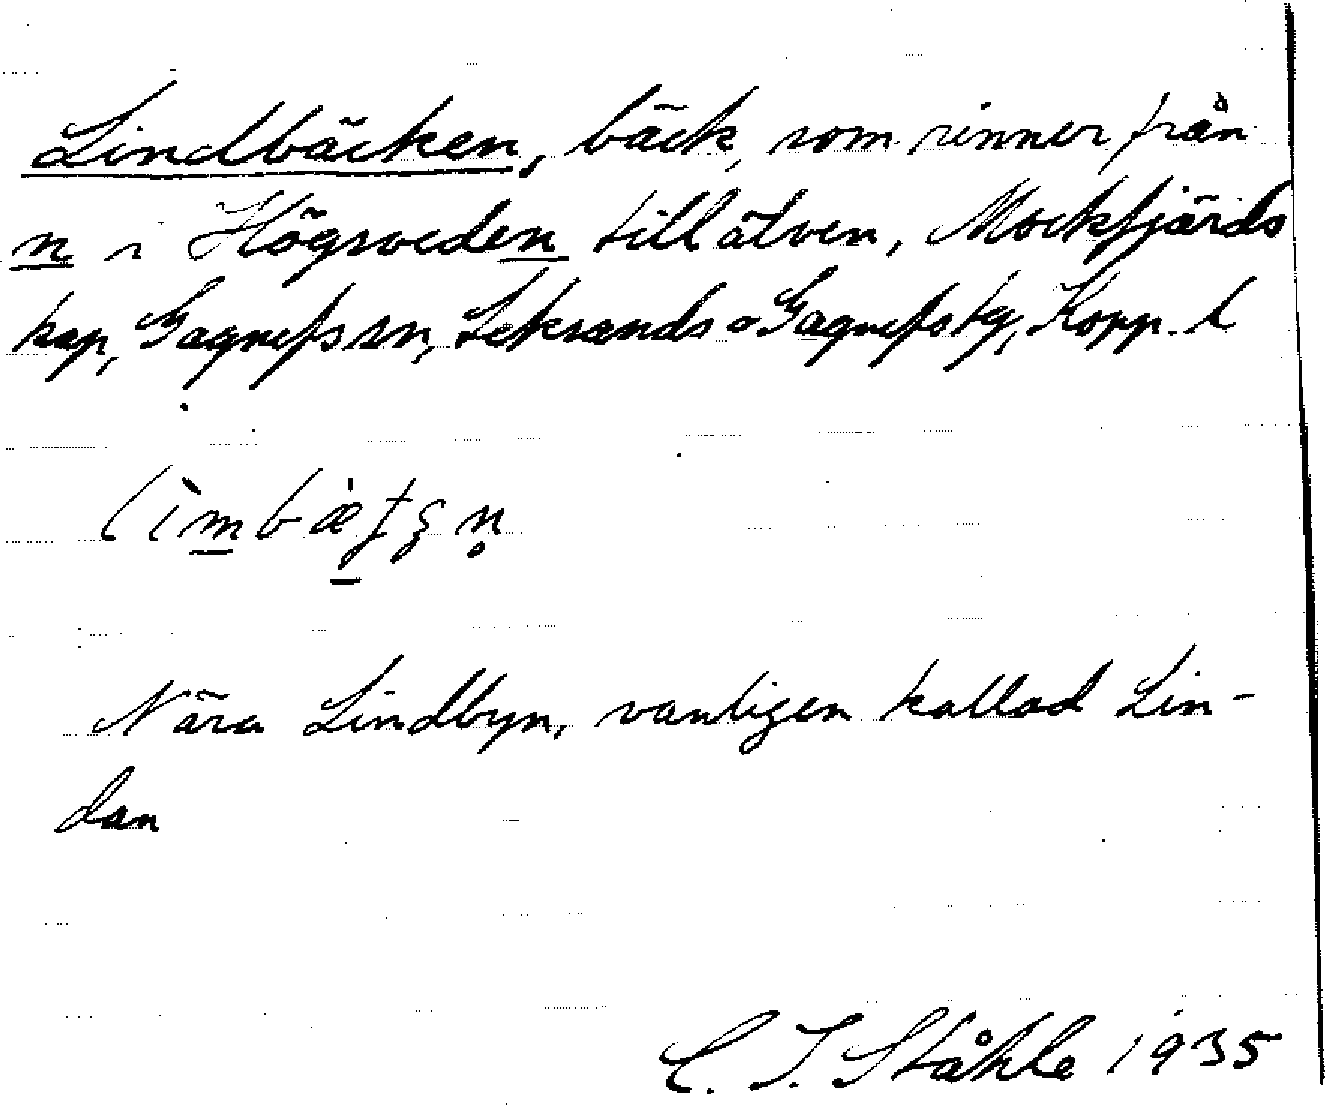 Lindbäcken, bäck, som rinner från
n i Högsveden till älven, Mockfjärds
kap, Gagnefs sn, Leksands o Gagnefs tg, Kopp. l
Nära Lindbyn, vanligen kallad Lin-
dan
C. I. Ståhle 1935